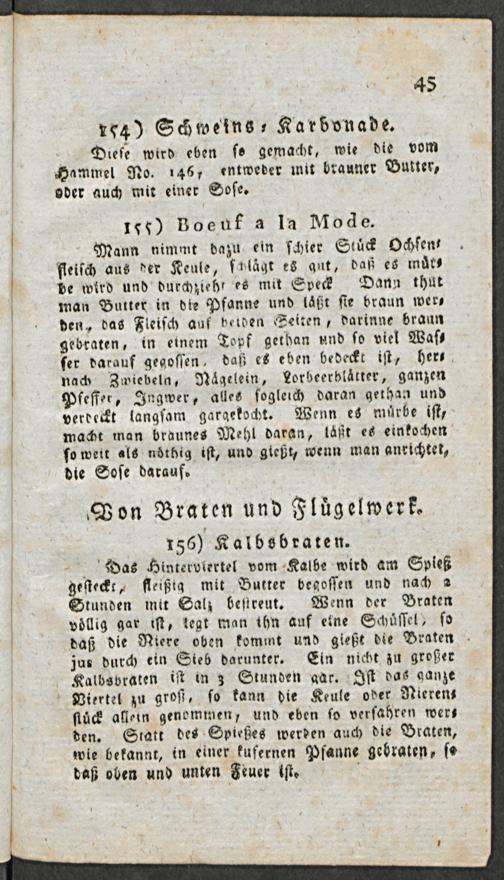 45
154) Schweins-Karbonade.
Diese wird eben so gemacht, wie die vom
Hammel No. 146, entweder mit brauner Butter,
oder auch mit einer Sose.
155) Boeuf a la Mode.
Mann nimmt dazu ein schier Stück Ochsen-
fleisch aus der Keule, schlägt es gut, daß es mür-
be wird und durchzieht es mit Speck Dann thut
man Butter in die Pfanne und läßt sie braun wer-
den, das Fleisch auf beiden Seiten, darinne braun
gebraten, in einem Topf gethan und so viel Was-
ser darauf gegossen, daß es eben bedeckt ist, her-
nach Zwiebeln, Nägelein, Lorbeerblätter, ganzen
Pfeffer, Ingwer, alles sogleich daran gethan und
verdeckt langsam gargekocht. Wenn es mürbe ist,
macht man braunes Mehl daran, läßt es einkochen
so weit als nöthig ist, und gießt, wenn man anrichtet,
die Sose darauf.
Von Braten und Flügelwerk.
156) Kalbsbraten.
Das Hinterviertel vom Kalbe wird am Spieß
gesteckt, fleißig mit Butter begossen und nach 2
Stunden mit Salz bestreut. Wenn der Braten
völlig gar ist, legt man ihn auf eine Schüssel, so
daß die Niere oben kommt und gießt die Braten
jus durch ein Sieb darunter. Ein nicht zu großer
Kalbsbraten ist in 3 Stunden gar. Ist das ganze
Viertel zu groß, so kann die Keule oder Nieren-
stück allein genommen, und eben so verfahren wer-
den. Statt des Spießes werden auch die Braten,
wie bekannt, in einer kufernen Pfanne gebraten, so
daß oben und unten Feuer ist.